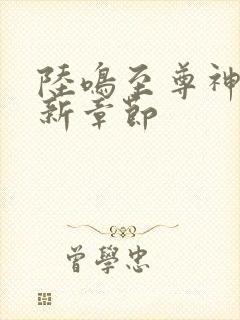 陸鳴至尊神
新章節
曾學忠